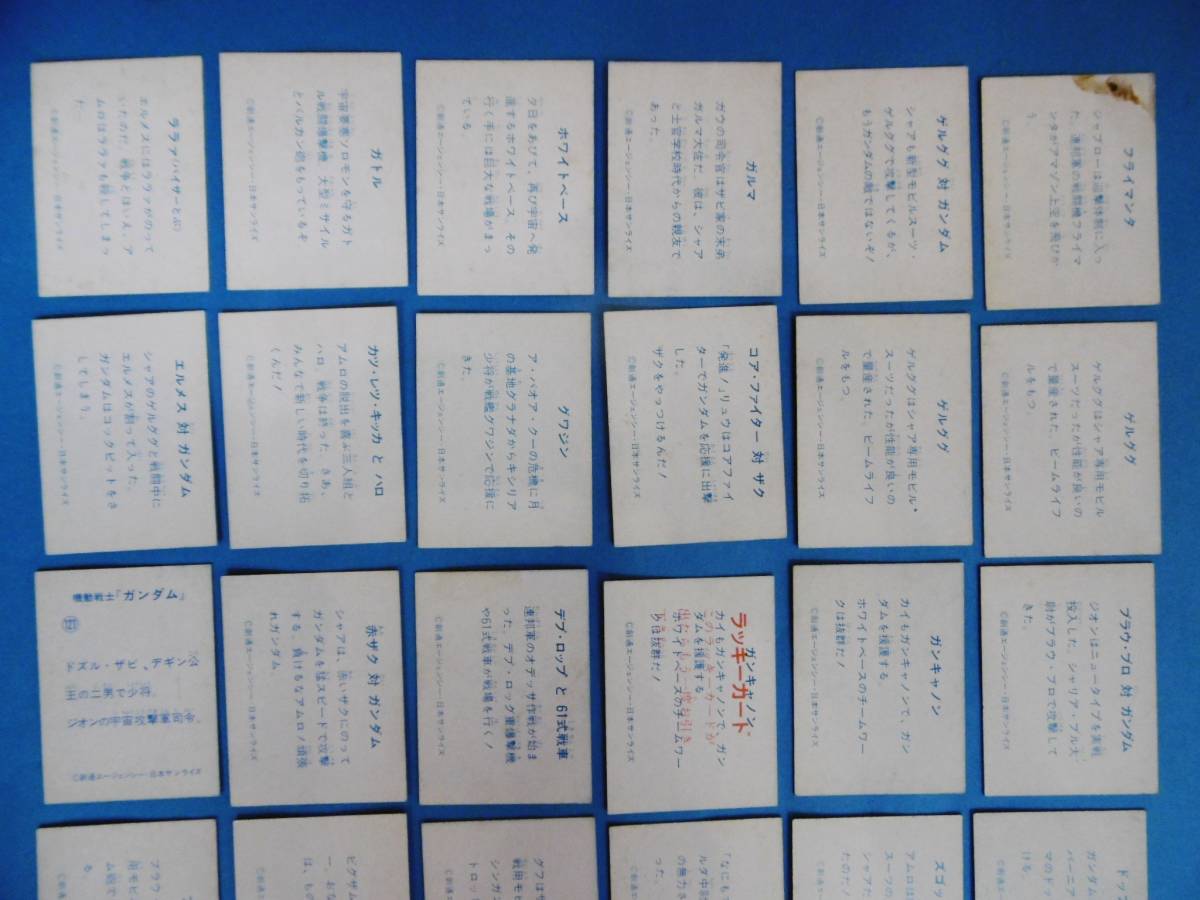 フライマンタ
ジャブローは迎撃体制に入っ
た。連邦軍の戦闘機フライマ
ンタがアマゾン上空を飛びか
う。
©創通エージェンシー・日本サンライズ
ゲルググ 対 ガンダム
シャアも新型モビルスーツ・
ゲルググで攻撃してくるが、
もうガンダムの敵ではないぞ!
©創通エージェンシー・日本サンライズ
ガルマ
ガウの司令官はザビ家の末弟
ガルマ大佐だ。彼は、シャア
と士官学校時代からの親友で
あった。
©創通エージェンシー・日本サンライズ
ホワイトベース
夕日をあびて、再び宇宙へ発
進するホワイトベース。その
行く手には巨大な戦場がまっ
ている。
©創通エージェンシー・日本サンライズ
ガトル
宇宙要塞ソロモンを守るガト
ル戦闘爆撃機 大型ミサイル
とバルカン砲をもっているぞ
©創通エージェンシー・日本サンライズ
ララァ(バイザーとぶ)
エルメスにはララァがのって
いたのだ。戦争とはいえ、ア
ムロはララァを殺してしまっ
た。
©創通エージェンシー・日本サンライズ
ゲルググ
ゲルググはシャア専用モビル
スーツだったが性能が良いの
で量産された。ビームライフ
ルをもつ。
©創通エージェンシー・日本サンライズ
ゲルググ
ゲルググはシャア専用モビル・
スーツだったが性能が良いの
で量産された。ビームライフ
ルをもつ。
©創通エージェンシー・日本サンライズ
コア・ファイター 対 ザク
「発進!」リュウはコアファイ
ターでガンダムを応援に出撃
した。
ザクをやっつけるんだ!
©創通エージェンシー・日本サンライズ
グワジン
ア・バオア・クーの危機に月
の基地グラナダからキシリア
少将が戦艦グワジンで応援に
きた。
©創通エージェンシー・日本サンライズ
カツ・レツ・キッカ と ハロ
アムロの脱出を喜ぶ三人組と
ハロ。戦争は終った。さあ、
みんなで新しい時代を切り拓
くんだ!
©創通エージェンシー・日本サンライズ
エルメス 対 ガンダム
シャアのゲルググと戦闘中に
エルメスが割って入った。
ガンダムはコックピットをさ
してしまう。
©創通エージェンシー・日本サンライズ
ブラウ・ブロ 対 ガンダム
ジオンはニュータイプを実戦
投入した。シャリア・ブル大
尉がブラウ・ブロで攻撃して
きた。
©創通エージェンシー・日本サンライズ
ガンキャノン
カイもガンキャノンで、ガン
ダムを援護する
ホワイトベースのチームワー
クは抜群だ!
©創通エージェンシー・日本サンライズ
ガンキャノン
ラッキーカード
カイもガンキャノンで、ガン
ダムを援護する
ホワイトベースのチームワー
クは抜群だ!
©創通エージェンシー・日本サンライズ
デブ・ロップ と 61式戦車
連邦軍のオデッサ作戦が始ま
った。デブ・ロッグ重爆撃機
や61式戦車が戦場を行く!
©創通エージェンシー・日本サンライズ
赤ザク 対 ガンダム
シャアは、赤いザクにのって
ガンダムを猛スピードで攻撃
する。負けるなアムロ!頑張
れガンダム。
©創通エージェンシー・日本サンライズ
機動戦士「ガンダム」
©創通エージェンシー・日本サンライズ
ドップ
ガンダム
バーニア
マのドッ
ける。
ズゴッ
アムロは
スーツの
シャアだ
たのだ!
「なにも
ルダ中
の無力さ
った。
グフはザ
戦用モビ
シンガ
トロッ
ビグザム
ー、おな
は、もの
ブラウ
用モビ
ム砲で
る